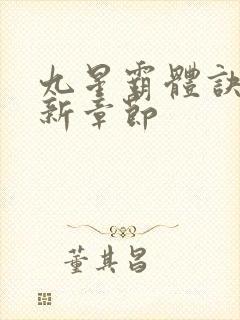 九星霸體訣
新章節
董其昌